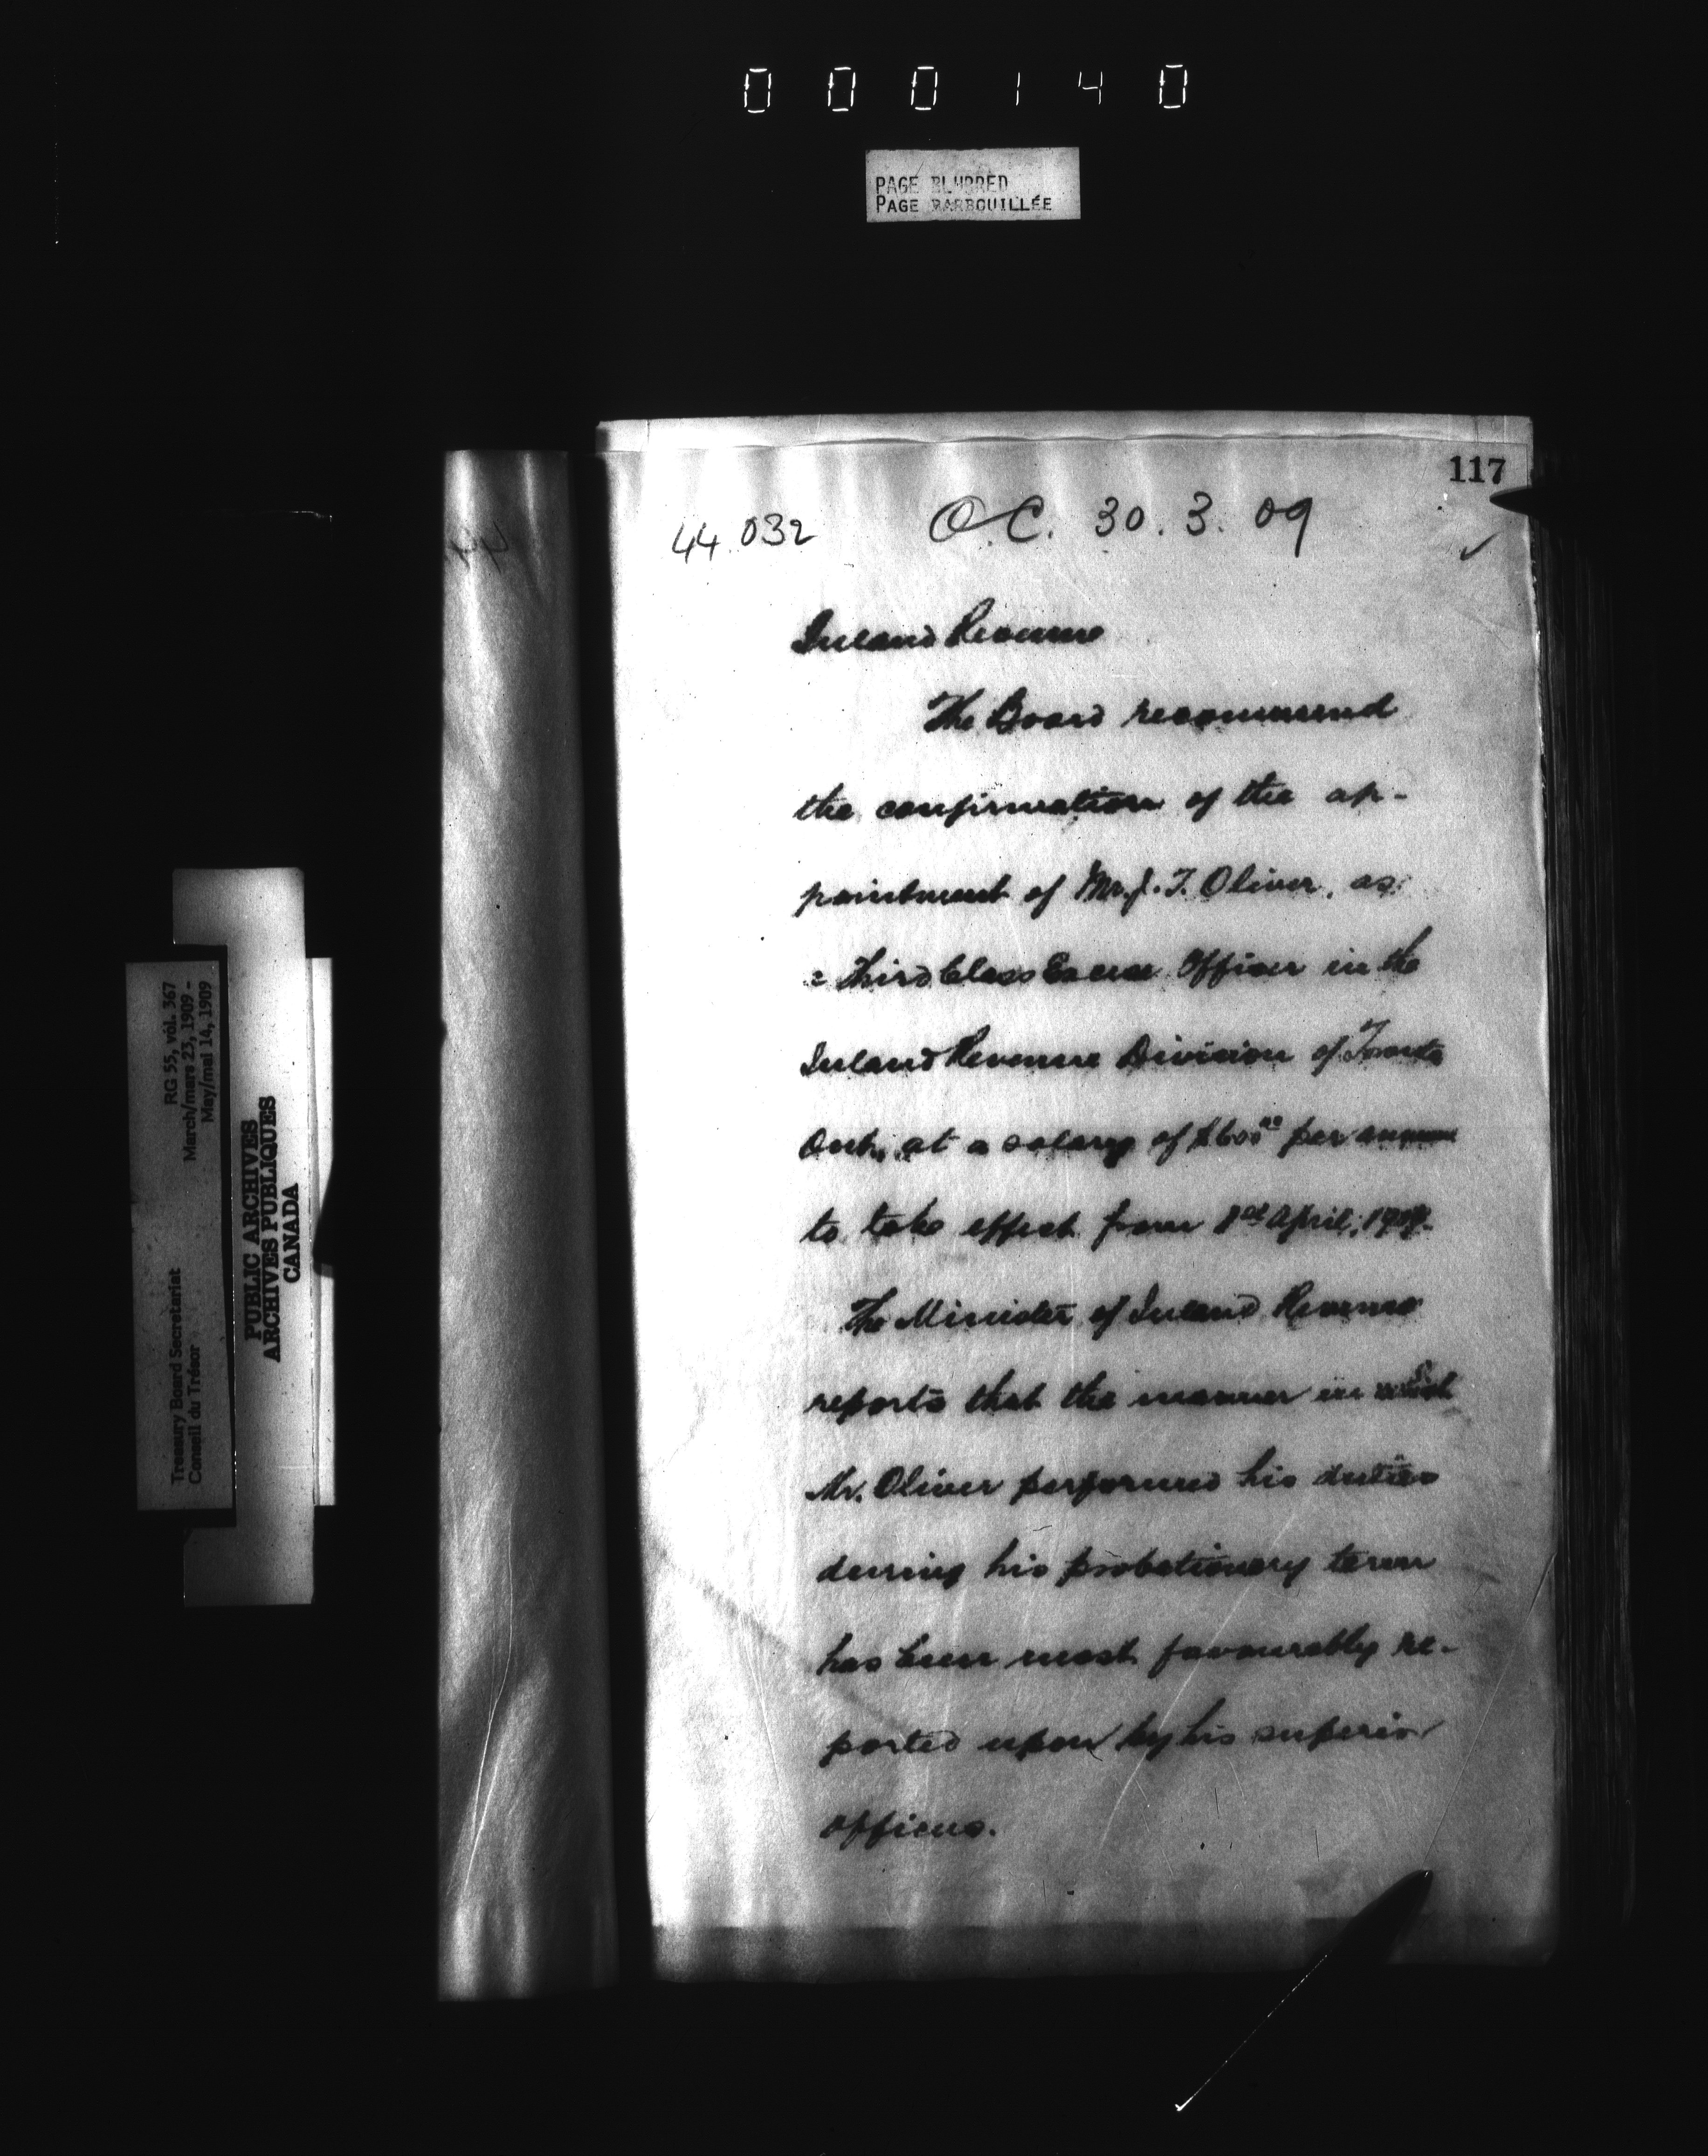 000140
PAGE BLURRED
PAGE BARBOUILLÉE
117
44.032 O.C. 30.3.09
Inland Revenue
The Board recommend
the confirmation of the ap-
pointment of Mr. J. T. Oliver, as
a third Class Excise Officer in the
Inland Revenue Division of Toronto
Ont., at a salary of $600⁰⁰ per annum
to take effect from 1st April, 1909.
The Minister of Inland Revenue
reports that the manner in which
Mr. Oliver performed his duties
during his probationary term
has been most favourably re-
ported upon by his superior
officers.
RG 55, vol. 367
March/mars 23, 1909 -
May/mai 14, 1909
Treasury Board Secretariat
Conseil du Trésor
PUBLIC ARCHIVES
ARCHIVES PUBLIQUES
CANADA